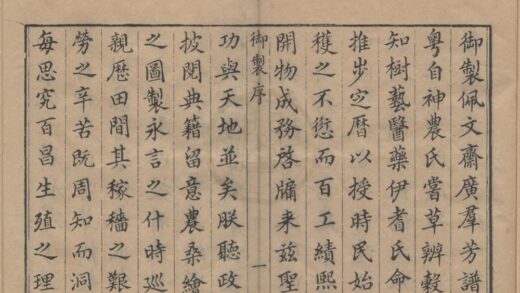 御製佩文齋廣羣芳譜
粤自神農氏嘗草辨穀
知樹藝醫藥伊耆氏命
推步定曆以授時民始
穫之不愆而百工績熙
開物成務啓牖来兹聖
御製序
一
功與天地並矣朕聽政
披閱典籍留意農桑繪
之圖製永言之什時巡
親歴田間其稼穡之艱
勞之辛苦既周知而洞
每思究百昌生殖之理